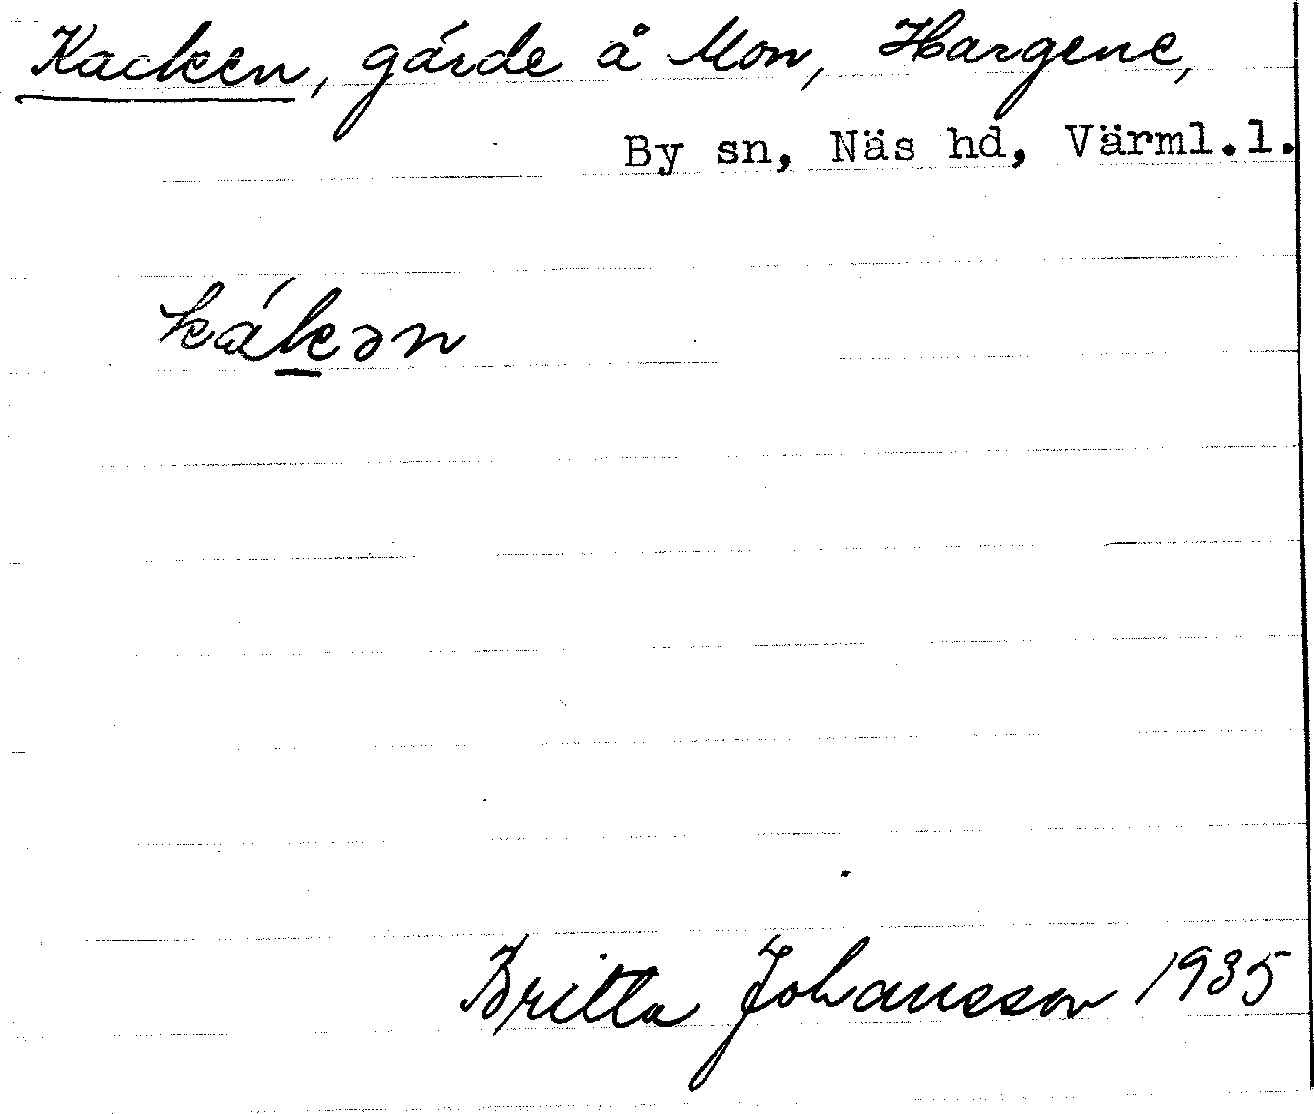 Kacken, gärde å Mon, Hargene,
By sn, Näs hd, Värml.l.
kák̲ən
Britta Johansson 1935